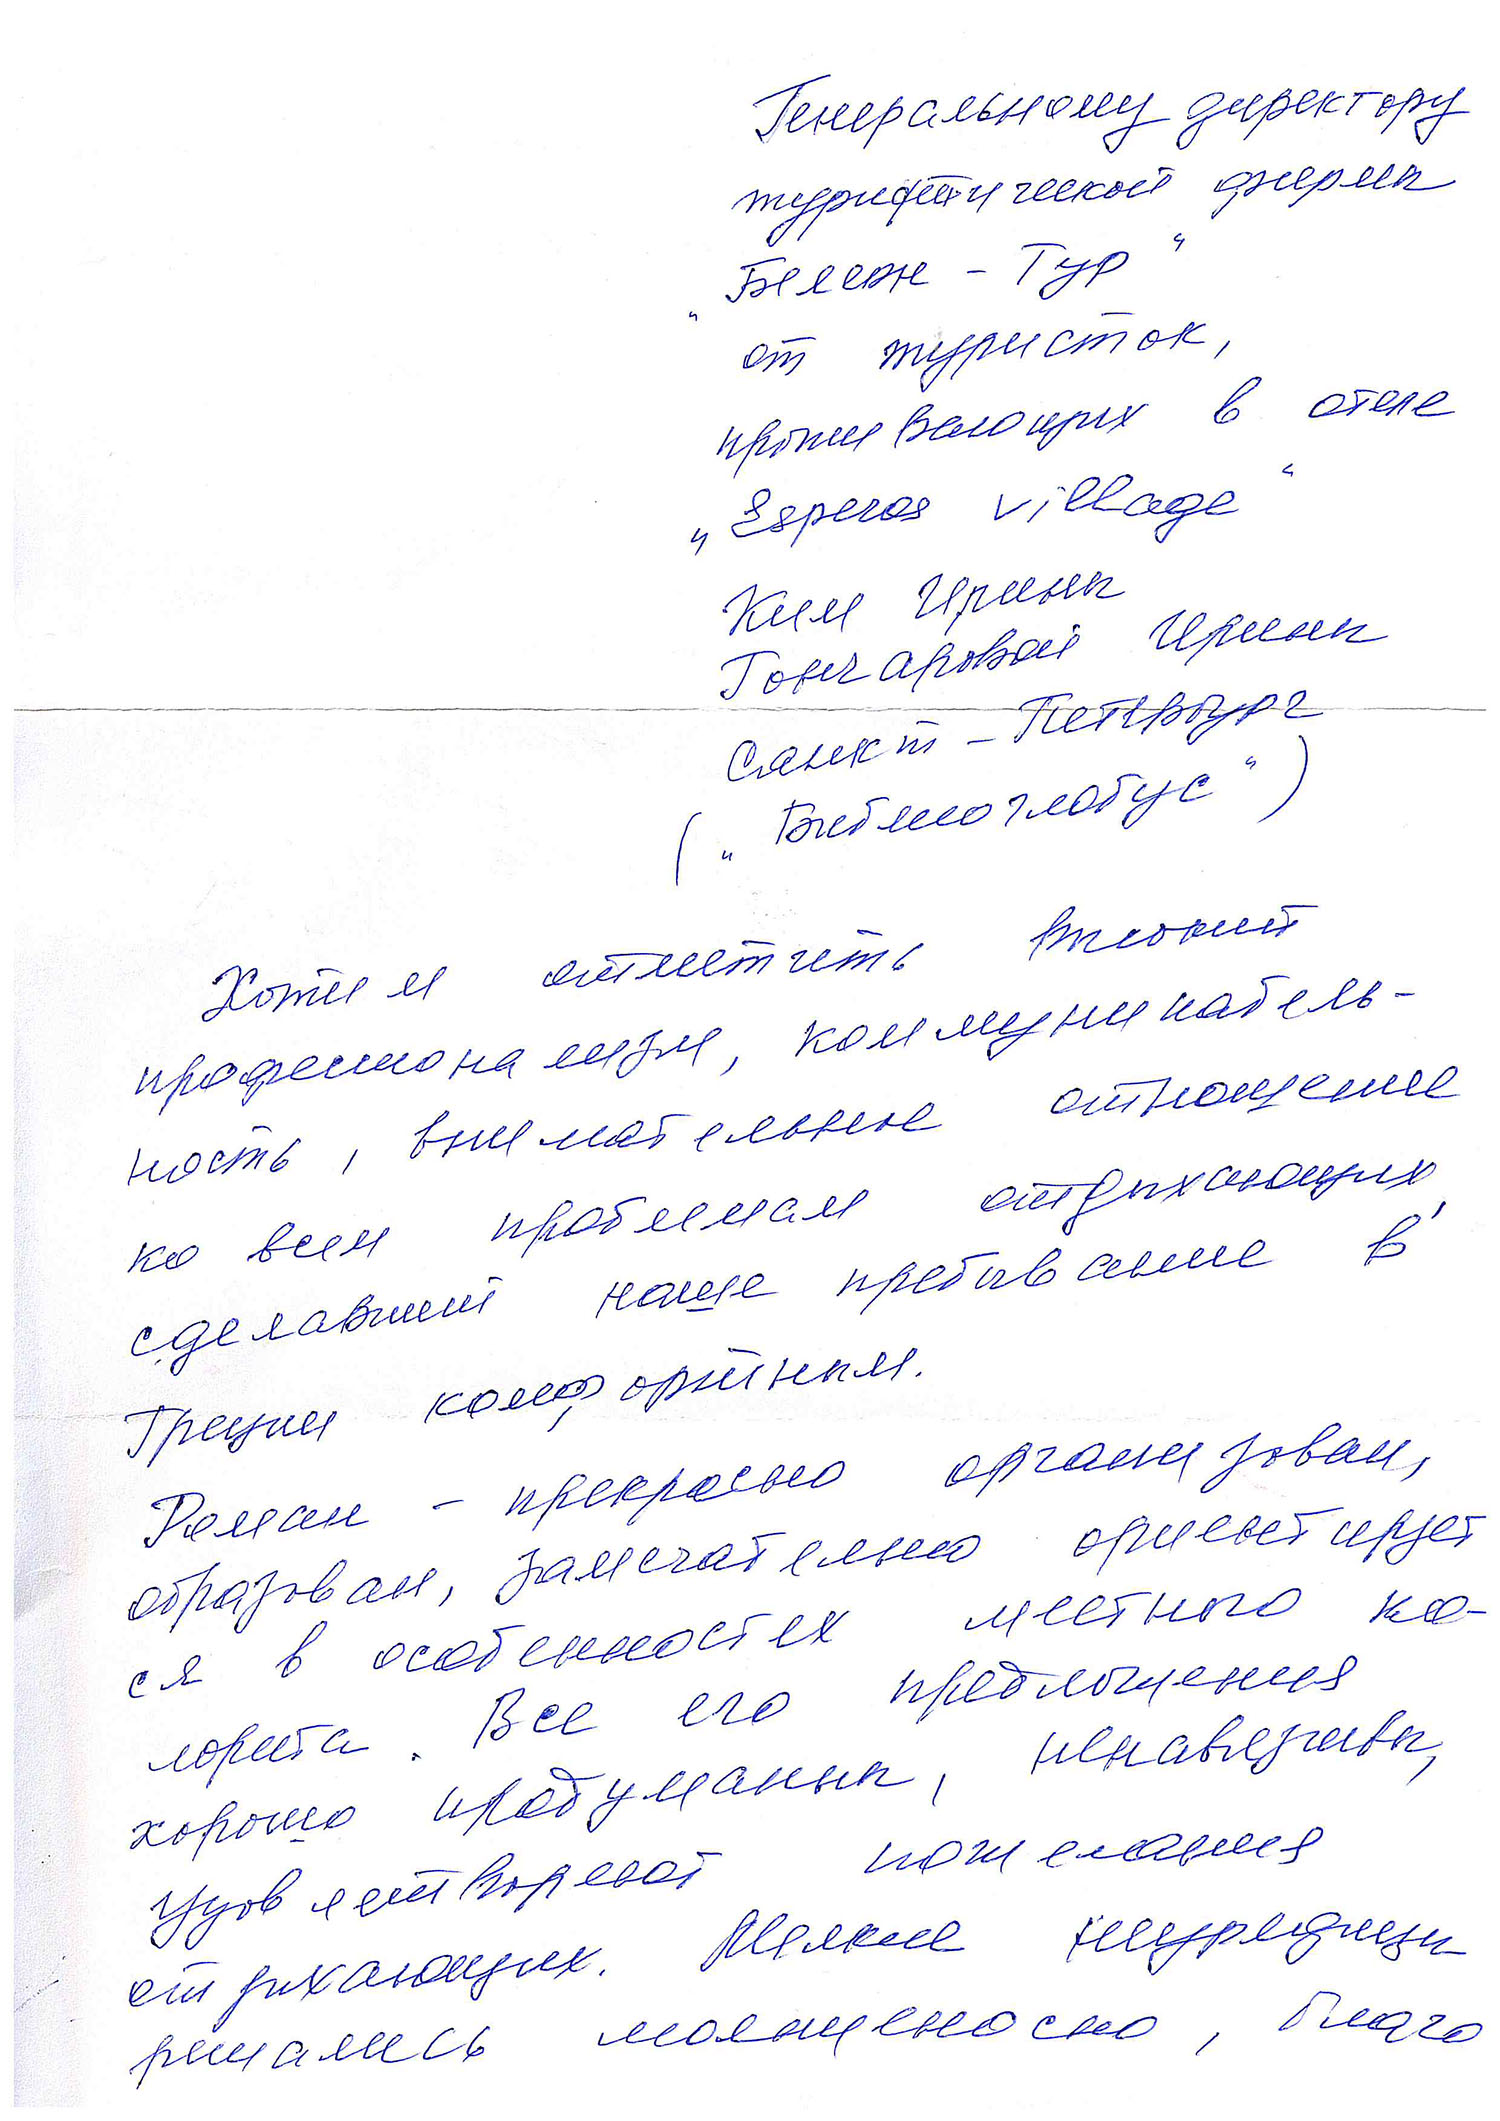 Генеральному директору
туристической фирмы
"Белеон - Тур"
от туристок,
проживающих в отеле
„Esperos village"
Ким Ирины
Гончаровой Ирины
Санкт - Петербург
(„Библиоглобус")
Хотим отметить высокий
профессионализм, коммуникабель-
ность, внимательное отношение
ко всем проблемам отдыхающих,
сделавший наше пребывание в
Греции комфортным.
Роман - прекрасно организован,
образован, замечательно ориентирует
ся в особенностях местного ко-
лорита. Все его предложения
хорошо продуманы, ненавязчивы,
удовлетворяют пожелания
отдыхающих. Мелкие неурядицы
решались молниеносно, благо